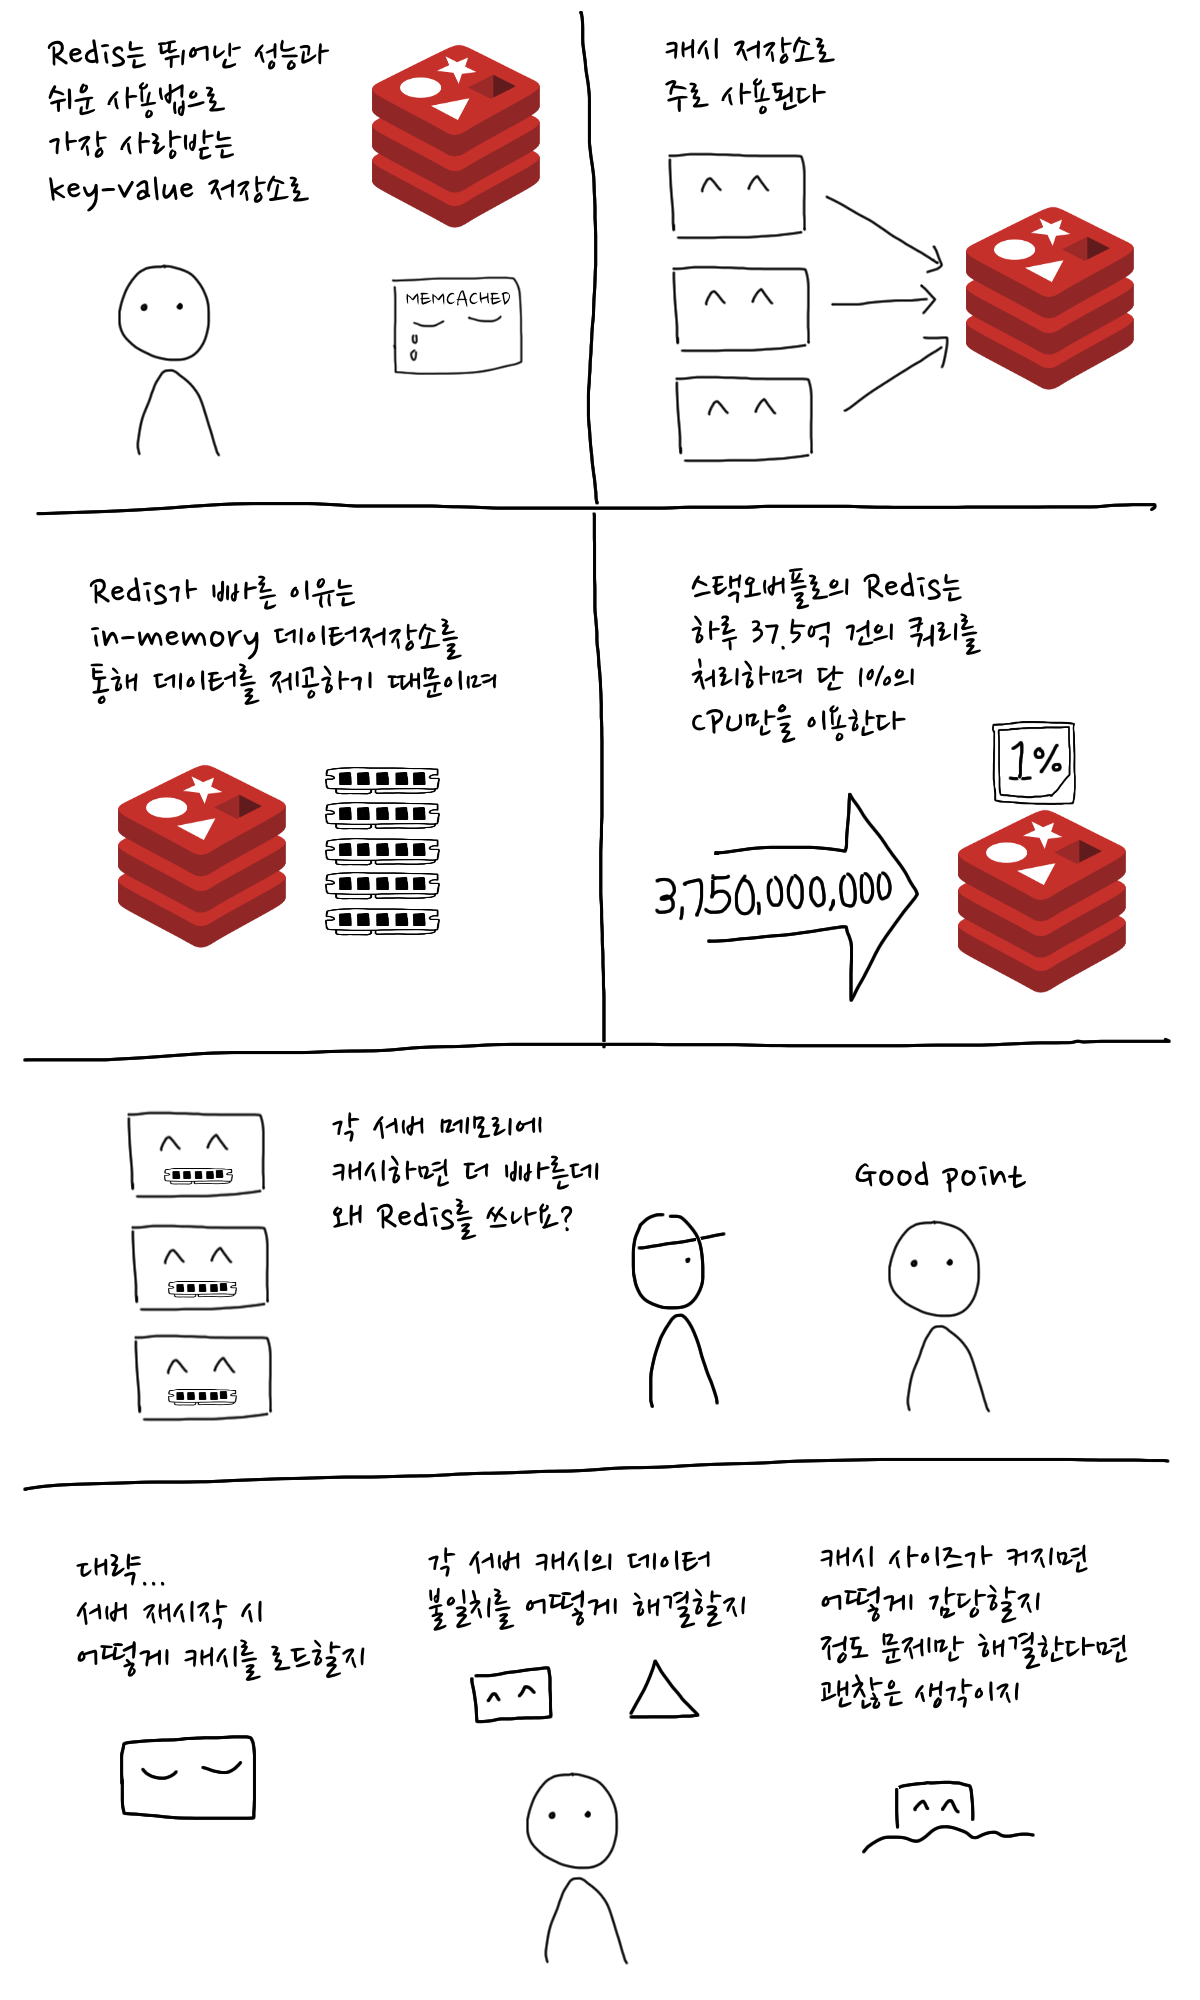 Redis는 뛰어난 성능과
쉬운 사용법으로
가장 사랑받는
key-value 저장소로
MEMCACHED
캐시 저장소로
주로 사용된다
Redis가 빠른 이유는
in-memory 데이터저장소를
통해 데이터를 제공하기 때문이며
스택오버플로의 Redis는
하루 37.5억 건의 쿼리를
처리하며 단 1%의
CPU만을 이용한다
1%
3,750,000,000
각 서버 메모리에
캐시하면 더 빠른데
왜 Redis를 쓰나요?
Good point
대략...
서버 재시작 시
어떻게 캐시를 로드할지
각 서버 캐시의 데이터
불일치를 어떻게 해결할지
캐시 사이즈가 커지면
어떻게 감당할지
정도 문제만 해결한다면
괜찮은 생각이지